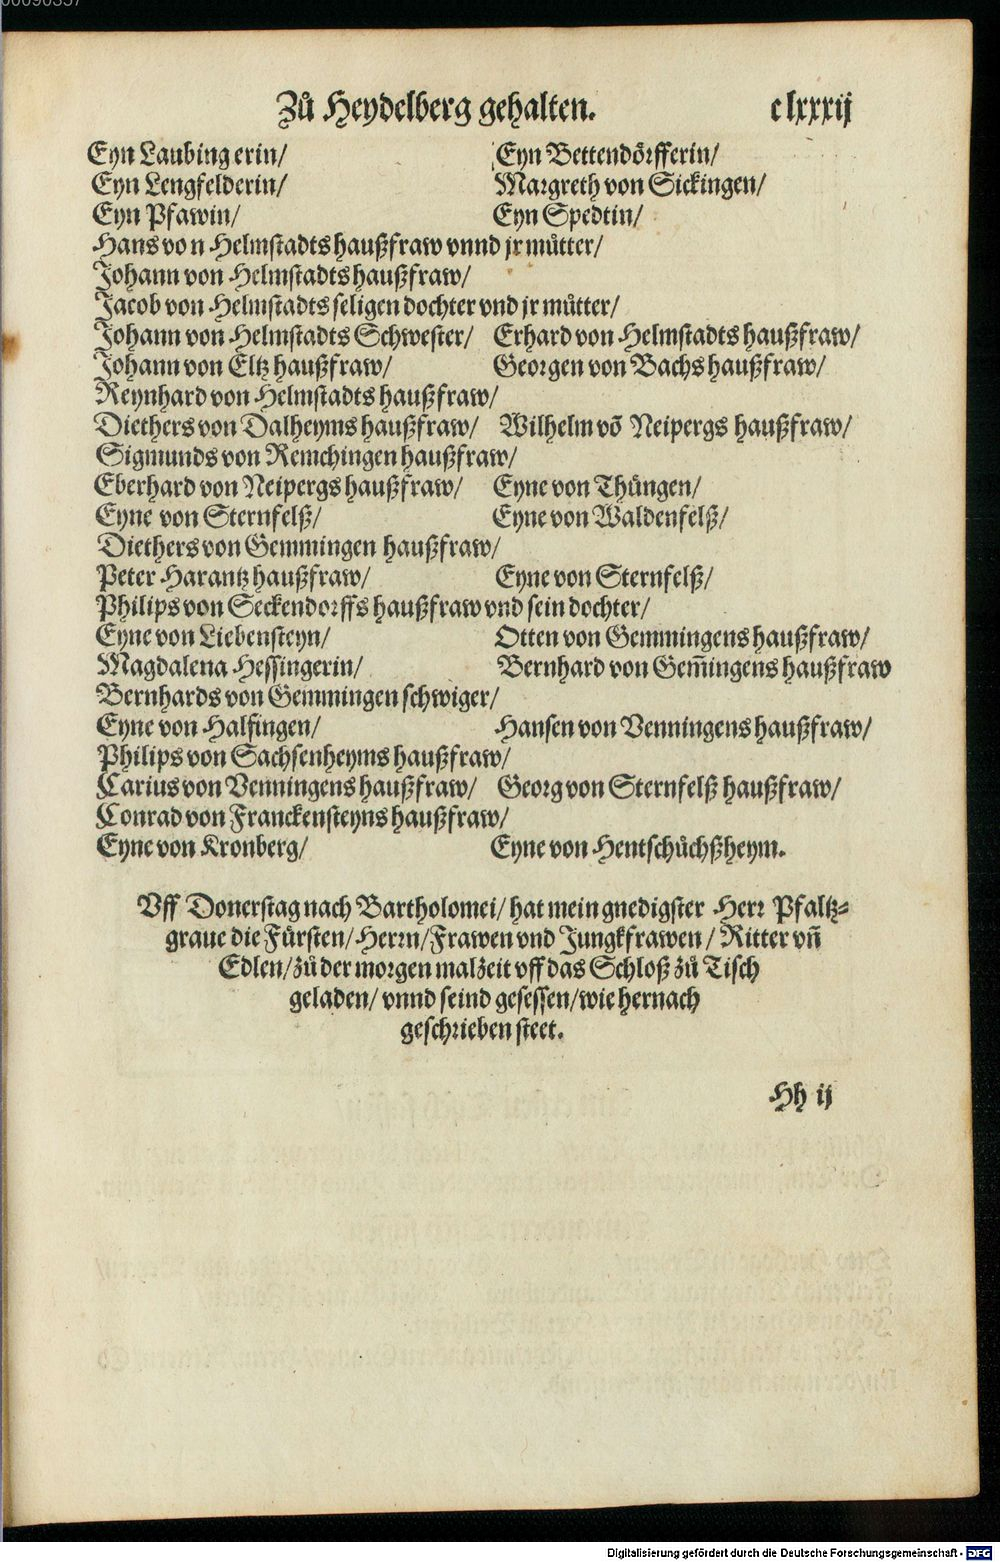 Zů Heydelberg gehalten. clxxxij
Eyn Laubingerin/ Eyn Bettendörfferin/
Eyn Lengfelderin/ Margreth von Sickingen/
Eyn Pfawin/ Eyn Spedtin/
Hans von Helmstadts haußfraw vnnd jr můtter/
Johann von Helmstadts haußfraw/
Jacob von Helmstadts seligen dochter vnd jr můtter/
Johann von Helmstadts Schwester/ Erhard von Helmstadts haußfraw/
Johann von Eltz haußfraw/ Georgen von Bachs haußfraw/
Reynhard von Helmstadts haußfraw/
Diethers von Dalheyms haußfraw/ Wilhelm võ Neipergs haußfraw/
Sigmunds von Remchingen haußfraw/
Eberhard von Neipergs haußfraw/ Eyne von Thüngen/
Eyne von Sternfelß/ Eyne von Waldenfelß/
Diethers von Gemmingen haußfraw/
Peter Harantz haußfraw/ Eyne von Sternfelß/
Philips von Seckendorffs haußfraw vnd sein dochter/
Eyne von Liebensteyn/ Otten von Gemmingens haußfraw/
Magdalena Hessingerin/ Bernhard von Gem̃ingens haußfraw
Bernhards von Gemmingen schwiger/
Eyne von Halfingen/ Hansen von Venningens haußfraw/
Philips von Sachsenheyms haußfraw/
Carius von Venningens haußfraw/ Georg von Sternfelß haußfraw/
Conrad von Franckensteyns haußfraw/
Eyne von Kronberg/ Eyne von Hentschůchßheym.
Vff Donerstag nach Bartholomei/ hat mein gnedigster Herr Pfaltz-
graue die Fürsten/ Herrn/ Frawen vnd Jungkfrawen/ Ritter vñ
Edlen/ zů der morgen malzeit vff das Schloß zů Tisch
geladen/ vnnd seind gesessen/ wie hernach
geschrieben steet.
Hh ij
Digitalisierung gefördert durch die Deutsche Forschungsgemeinschaft - DFG